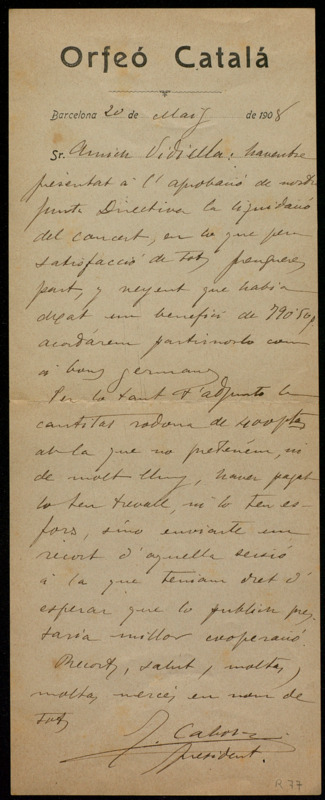 Orfeó Catalá
Barcelona 20 de Maig de 1908
Sr. Amich Vidiella: haventse
presentat á l'aprobació de nostra
Junta Directiva la liquidació
del concert, en lo que per
satisfacció de tots prengueres
part, y vejent que habia
deixat un benefici de 790'50 p
acordárem partirnoslo com
á bons germans
Per lo tant t'adjunto la
cantitat rodona de 400 ptas
ab la que no preteném, ni
de molt lluny, haver pagat
lo teu travall, ni lo teu es-
fors, sino enviarte un
recort d'aquella sessió
á la que teniam dret d'
esperar que lo publich pres-
taria millor cooperació.
Recorts, salut, moltas,
moltas mercés en nom de
tots
J. Cabot
president.
R. 77